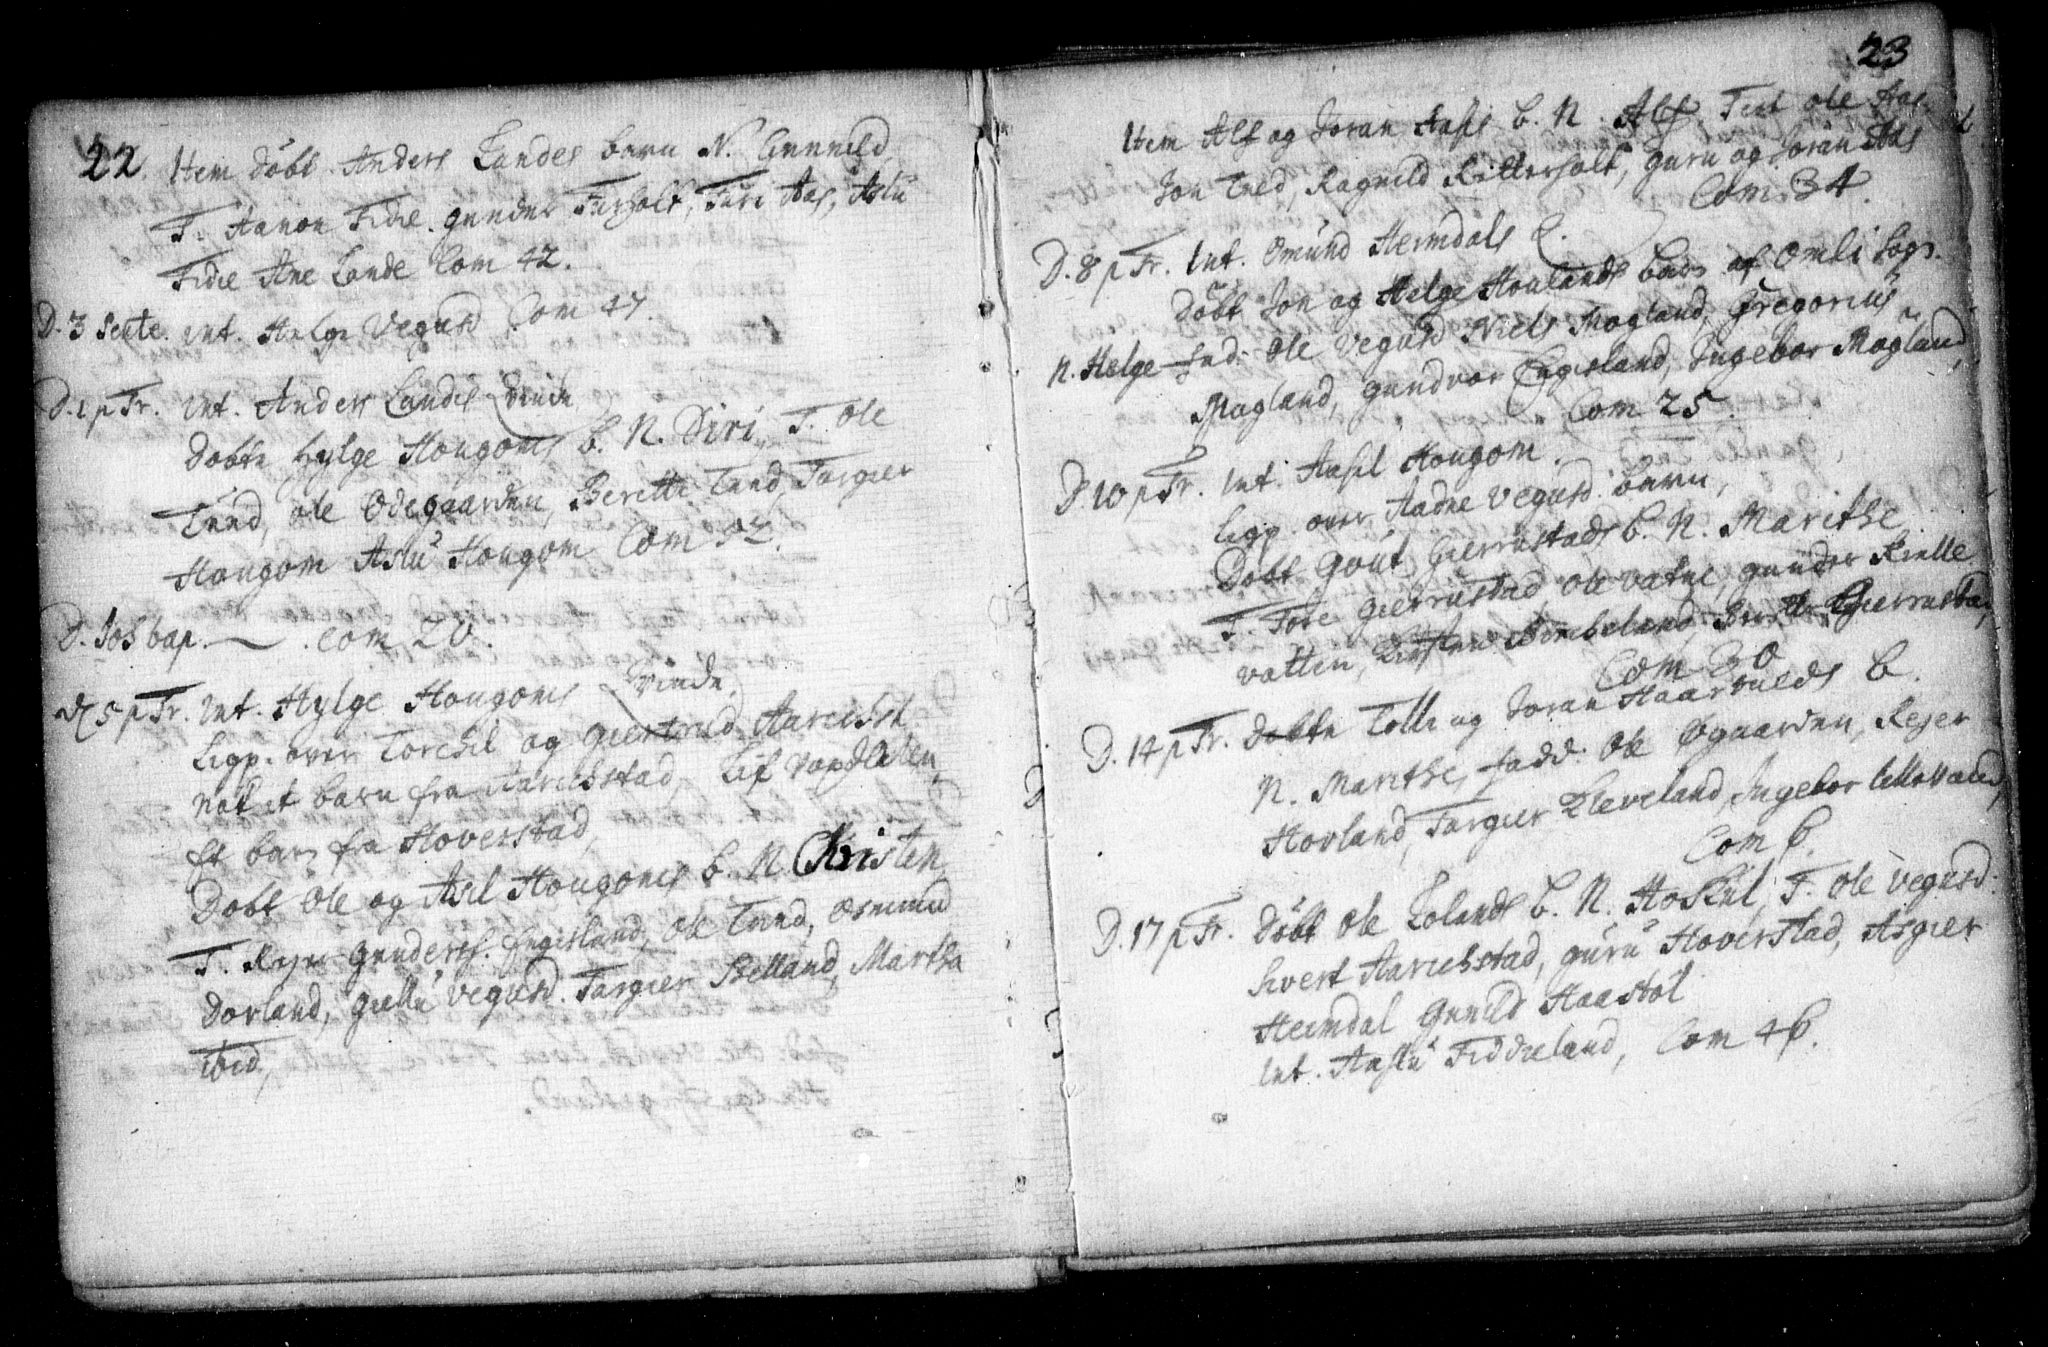 22. Item döbt Anders Landes barn N. Gunnild
T. Aanon Fidie. gunder Furholt, Turi Aas, Aslu
Fidie Ane Lande Com 42.
D. 3 Sente. int. Helge Vegusd Com 47.
D. 1 p Tr. int. Anders Landes Qvinde
Döbte Hylge Hougoms b. N. Siri, T. Ole
Tued, Ole Ödegaarden, Berette Tued Targier
Hougom Aslu Hougom Com 32.
D. Joh bap. — . com 20.
D 5 p Tr. int. Hylge Hougoms Qvinde.
Ligp. over Torchil og Giertrud Aarichst
nok et barn fra Aarichstad, Lif Vapdalen,
Et barn fra Hoverstad,
Döbt Ole og Asil Hougoms b. N Christen
T. Rejer Gunders. Engesland, Ole Tued, Osmund
Dorland, Giellu vegusd. Targier Stelland, Martha
ibid,
23
Item Alf og Joran Aases b. N. Alf Test Ole Aas
Jon Tved, Ragnild Ritterholt, Guru og Joran Aas
Com 34.
D. 8 p Tr. int. Omund Heimdals Q.
Döbt Jon og Helge Houlands barn af Omli Sogn.
N. Helge Fad: Ole Vegusd Niels Mogland, Gregorius
Mogland, Gundvor Engesland, Ingebor Mogland,
Com 25.
D. 10 p Tr. int. Aasil Hougom.
Ligp. over Aadne Vegusd. barn,
Döbt Gout Gierrustads b. N. Marithe
T. Tore Gierrustad Ole Vatne, Gunder Kielle
vatten, Kirsten Gierrustad,
Com 30
D. 14 p Tr. Döbte Tolle og Joran Haarveds b.
N. Marithe, Fadd: Ole Øgaarden, Rejer
Hovland, Targier Kleveland, Ingebor Ullevand,
Com 6.
D. 17 p Tr. Döbt Ole Lolands b. N. Hoskul, T. Ole Vegusd.
Sivert Aarichstad, Guru Hoverstad, Asgier
Heimdal Gunild Haastöl
int. Aaslu Fiddieland, Com 46.